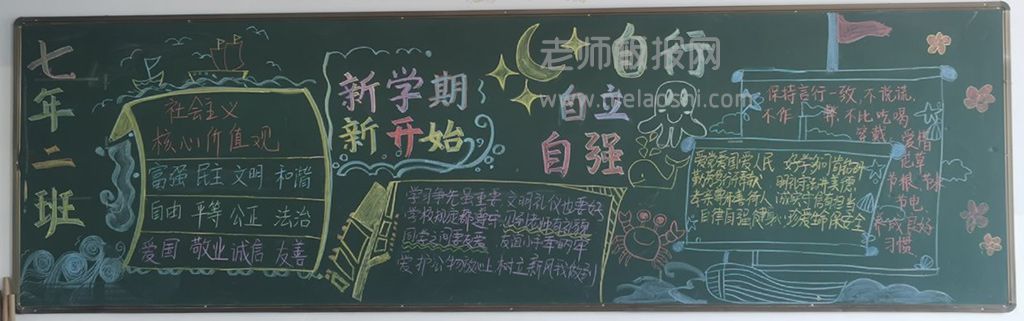 七年二班
社会主义
核心价值观
富强 民主 文明 和谐
自由 平等 公正 法治
爱国 敬业 诚信 友善
新学期
新开始
自行
自立
自强
老师板报网
学习争先虽重要 文明礼仪也要好
学校规定都遵守
同学之间要友爱
爱护公物放心上 树立新风我做到
保持言行一致,不说谎,
不作弊 不比吃喝
穿戴 爱惜
花草
节粮、节水
节电
养成良好
习惯
热爱祖国爱人民 好学多问肯钻研
勤劳俭朴 明礼守法讲美德
孝亲尊师善待人 诚实守信有担当
自律自强健身心 珍爱生命保安全